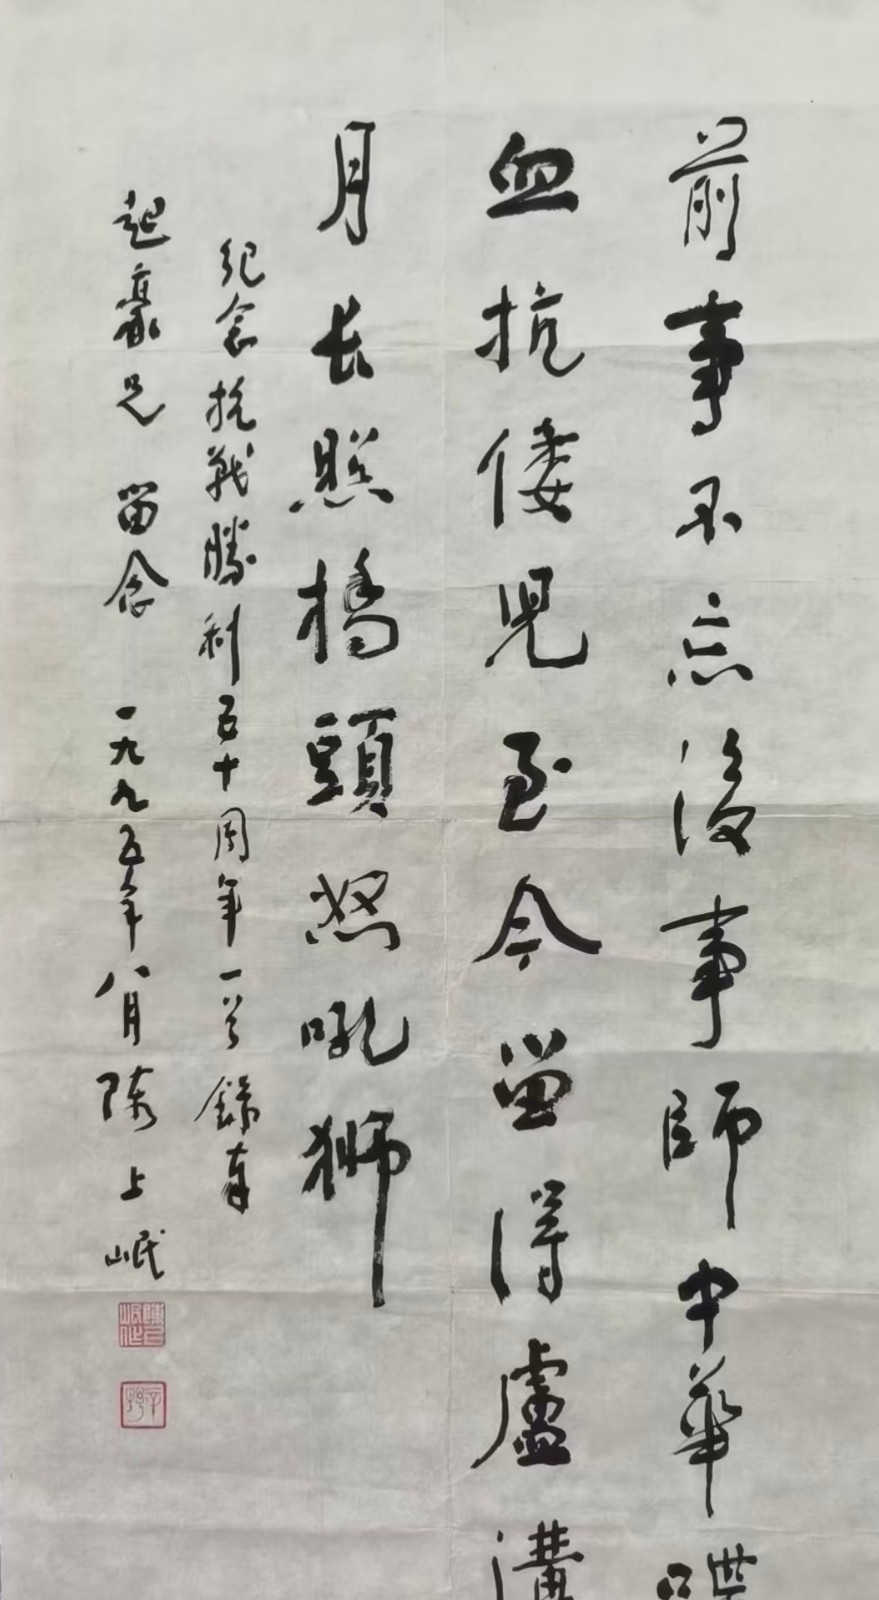 前事不忘後事師中華喋
血抗倭兒至今留得盧溝
月长照橋頭怒吼獅
纪念抗战勝利五十周年一首錄奉
起豪兄留念 一九九五年八月陈上岷